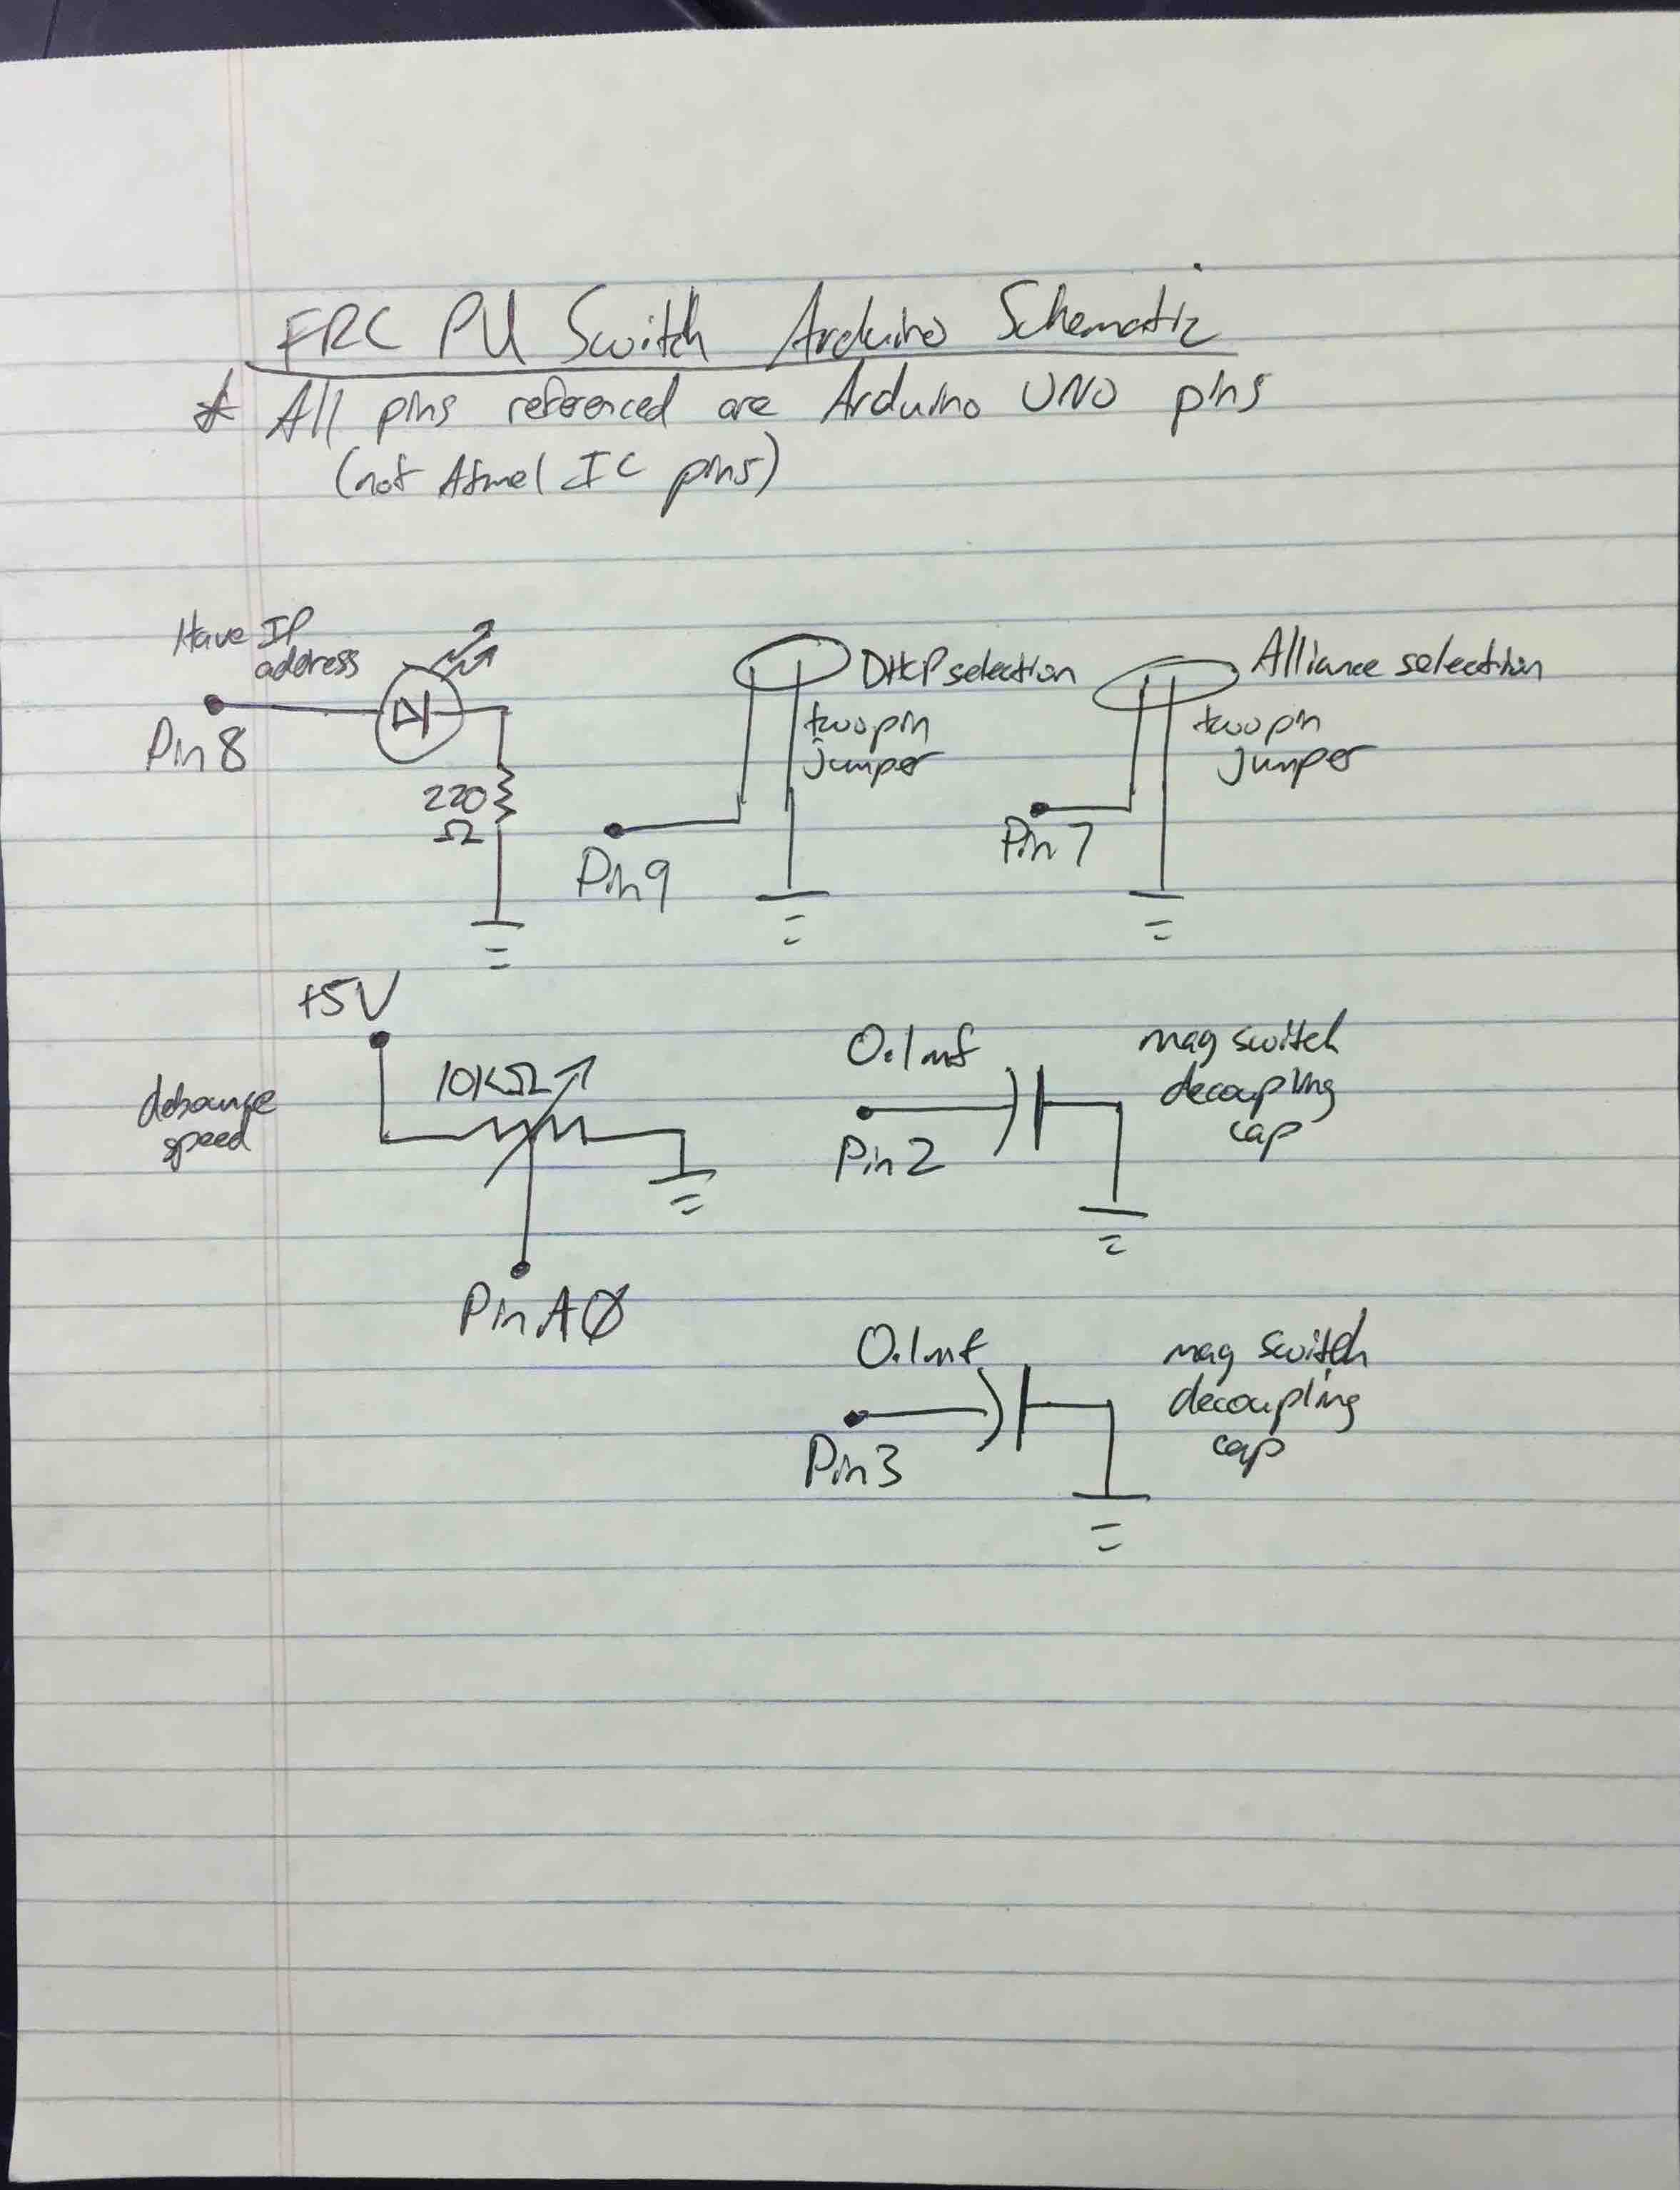 FRC PU Switch Arduino Schematic
* All pins referenced are Arduino UNO pins
(not Atmel IC pins)
Have IP
address
Pin 8
220
Ω
DHCP selection
two pin
jumper
Pin 9
Alliance selection
two pin
jumper
Pin 7
+5V
10KΩ
debounce
speed
Pin AØ
0.1mf
mag switch
decoupling
cap
Pin 2
0.1mf
mag switch
decoupling
cap
Pin 3